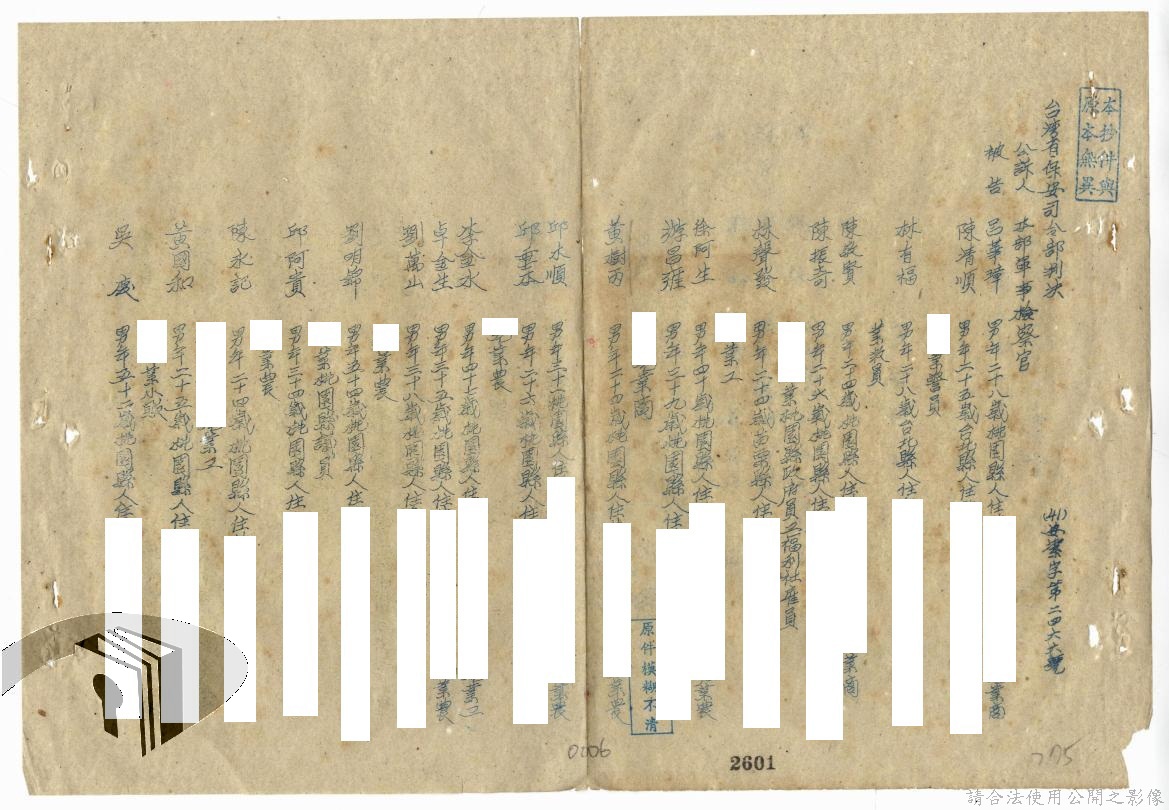 本抄件與
原本無異
台灣省保安司令部判決
(41)安潔字第二四六六號
公訴人 本部軍事檢察官
被告 呂華璋 男年二十八歲桃園縣人住 業商
陳清順 男年三十五歲台北縣人住
業警員
林有福 男年二十八歲台北縣人住
業教員
陳啟賢 男年二十四歲桃園縣人住 業商
陳振奇 男年二十六歲桃園縣人住
業桃園縣政府員工福利社雇員
林聲發 男年二十四歲苗栗縣人住
業工
徐阿生 男年四十歲桃園縣人住 業農
游昌雍 男年二十九歲桃園縣人住
業商
黃樹丙 男年二十四歲桃園縣人住 業農
原件模糊不清
邱水順 男年三十一歲桃園縣人住 業農
邱 男年二十六歲桃園縣人住
業農
李金水 男年四十 歲桃園縣人住 業工
卓金生 男年三十五歲桃園縣人住 業農
劉萬山 男年三十八歲桃園縣人住
業農
劉明錦 男年五十四歲桃園縣人住
業桃園縣議員
邱阿貴 男年三十四歲桃園縣人住
業農
陳永記 男年二十四歲桃園縣人住
業工
黃國和 男年二十五歲桃園縣人住
業水販
吳 男年五十二歲桃園縣人住
0006
2601
請合法使用公開之影像